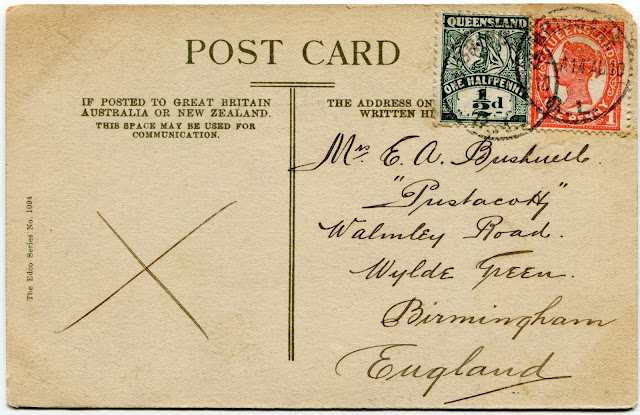 POST CARD
IF POSTED TO GREAT BRITAIN
AUSTRALIA OR NEW ZEALAND.
THIS SPACE MAY BE USED FOR
COMMUNICATION.
THE ADDRESS ON
WRITTEN
QUEENSLAND
ONE HALFPENNY
1/2d
QUEENSLAND
Mrs E. A. Bushnell.
"Pustacott"
Walmley Road.
Wylde Green.
Birmingham
England
The Edco Series No. 1094